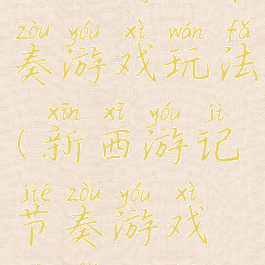 zòu yóu xì wán fǎ
奏游戏玩法
xīn xī yóu jì
(新西游记
jié zòu yóu xì
节奏游戏